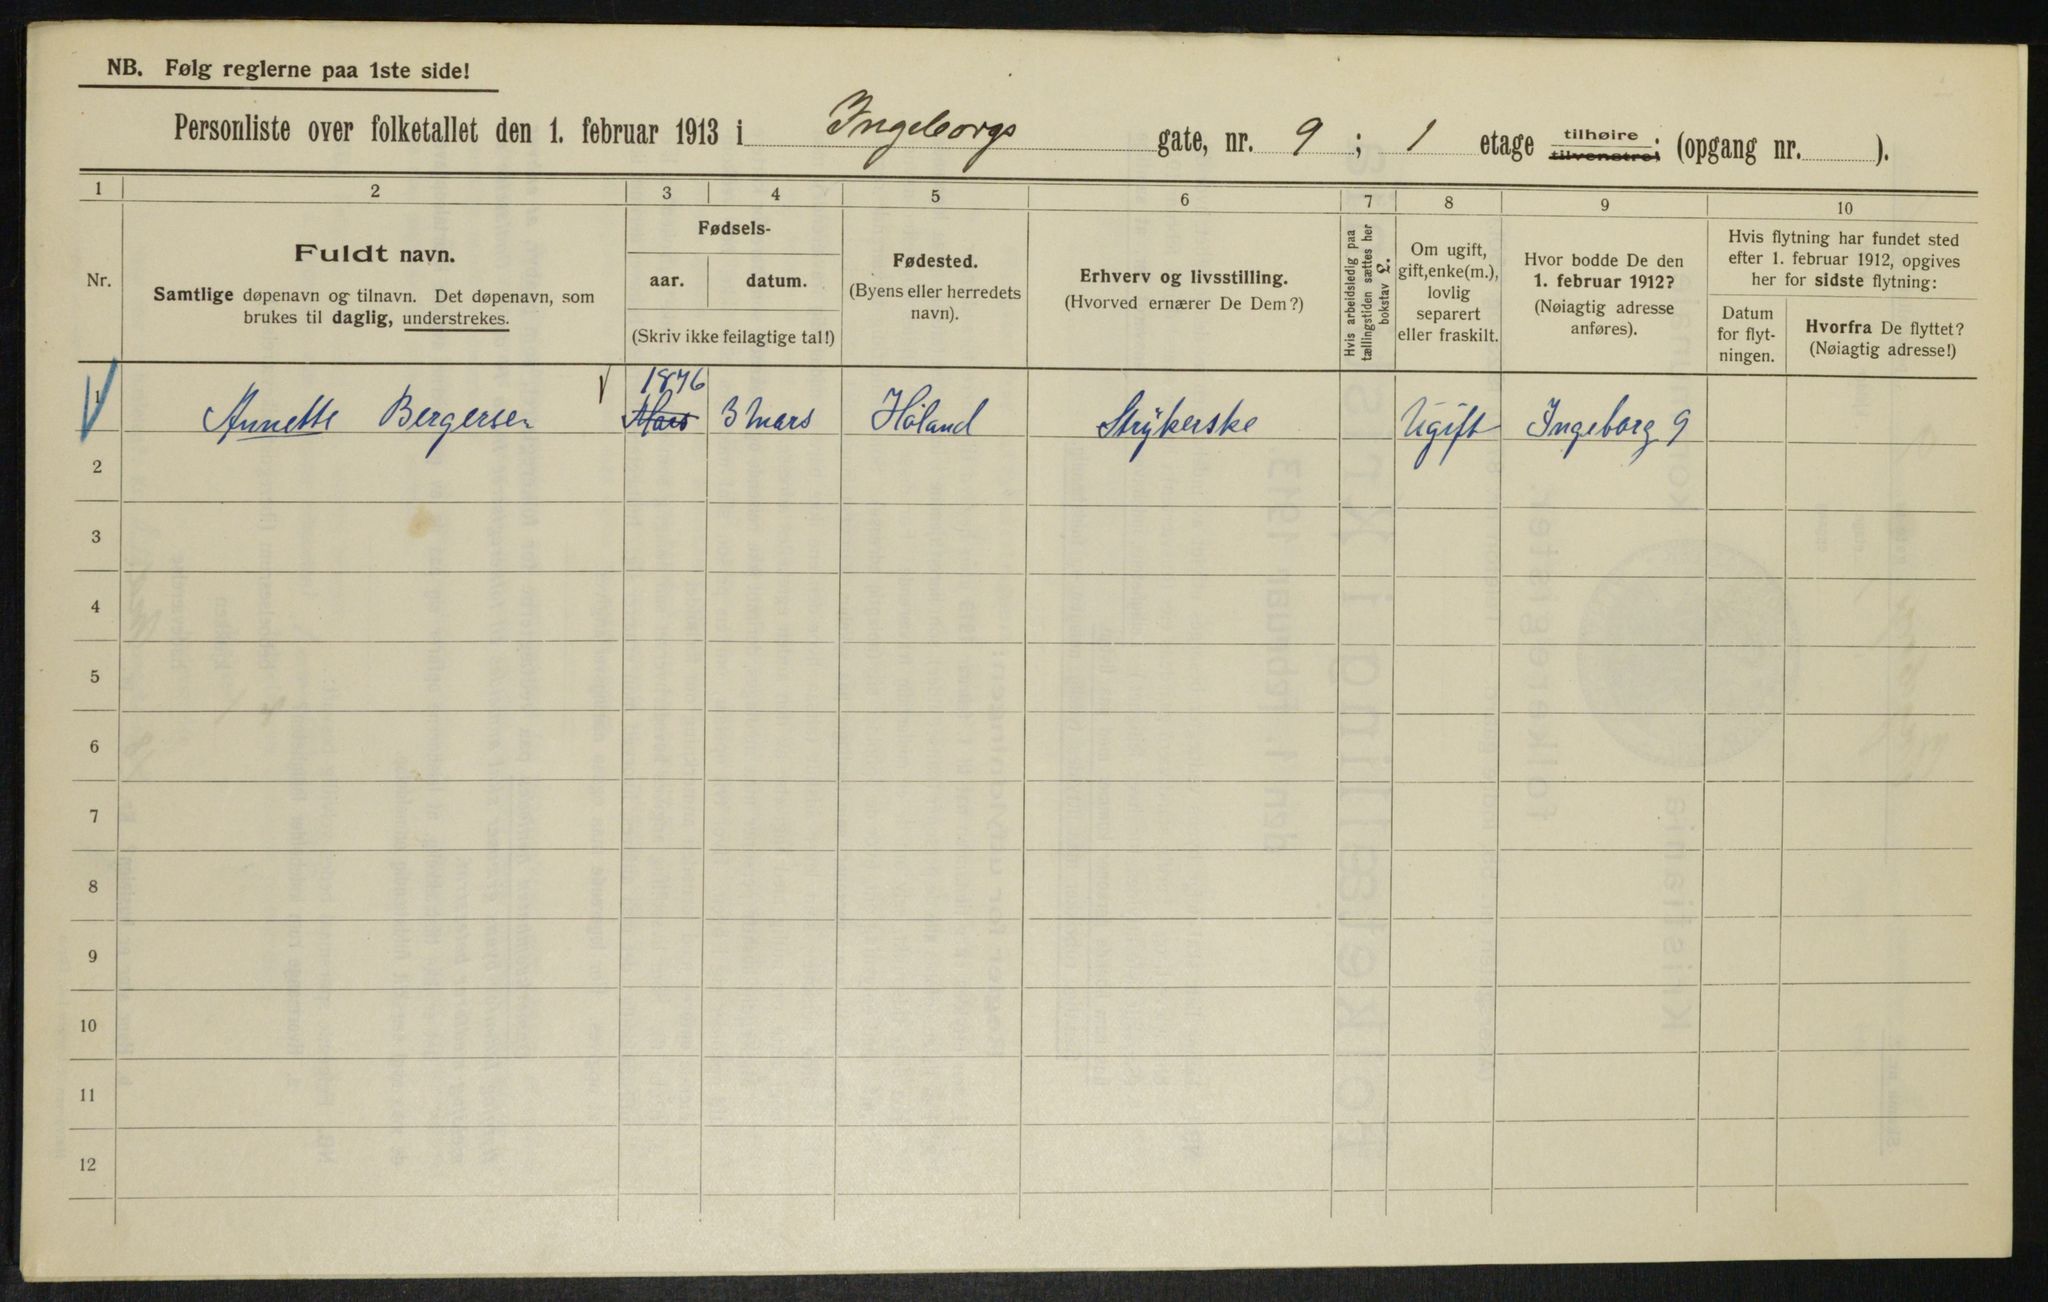 NB. Følg reglerne paa 1ste side!
Personliste over folketallet den 1. februar 1913 i Ingeborgs gate, nr. 9 ; 1 etage tilhøire tilvenstre; (opgang nr. ).
1 2 3 4 5 6 7 8 9 10
Nr.
Fuldt navn.
Samtlige døpenavn og tilnavn. Det døpenavn, som
brukes til daglig, understrekes.
Fødsels-
aar. datum.
(Skriv ikke feilagtige tal!)
Fødested.
(Byens eller herredets
navn).
Erhverv og livsstilling.
(Hvorved ernærer De Dem?)
Hvis arbeidsledig paa
tællingstiden sættes her
bokstav £.
Om ugift,
gift, enke(m.),
lovlig
separert
eller fraskilt.
Hvor bodde De den
1. februar 1912?
(Nøiagtig adresse
anføres).
Hvis flytning har fundet sted
efter 1. februar 1912, opgives
her for sidste flytning:
Datum
for flyt-
ningen.
Hvorfra De flyttet?
(Nøiagtig adresse!)
1876
1 Annette Bergersen Mars 3 mars Høland Strykerske Ugift Ingeborg 9
2
3
4
5
6
7
8
9
10
11
12